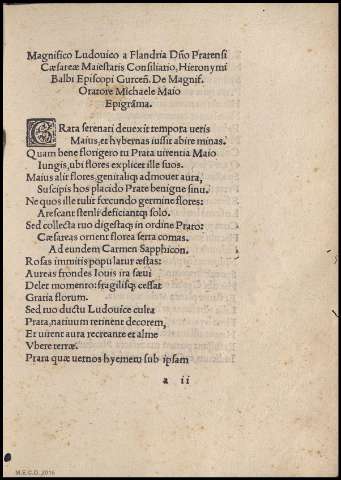 Magnifico Ludouico a Flandria Dn̄o Pratensi
Cæsareæ Maiestatis Consiliario, Hieronymi
Balbi Episcopi Gurceñ. De Magnif.
Oratore Michaele Maio
Epigrāma.
GRata serenati deuexit tempora ueris
Maius, et hybernas iussit abire minas.
Quam bene florigero tu Prata uirentia Maio
Iungis, ubi flores explicet ille suos.
Maius alit flores, genitaliq; admouet aura,
Suscipis hos placido Prate benigne sinu.
Ne quos ille tulit fœcundo germine flores:
Arescant sterili deficiantq; solo.
Sed collecta tuo digestaq; in ordine Prato:
Cæsareas ornent florea serta comas.
Ad eundem Carmen Sapphicon.
Rosas immitis populatur æstas:
Aureas frondes Iouis ira sæui
Delet momento: fragilisq; cessat
Gratia florum.
Sed tuo ductu Ludouice culta
Prata, natiuum retinent decorem,
Et uirent aura recreante et almæ
Vbere terræ.
Prata quæ uernos hyemem sub ipsam
a ii
M.E.C.D. 2016